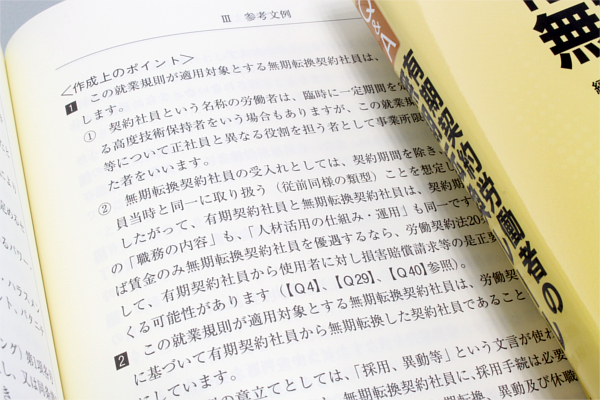 Ⅲ 参考文例
〈作成上のポイント〉
1 この就業規則が適用対象とする無期転換契約社員は、
します。
① 契約社員という名称の労働者は、臨時に一定期間を
る高度技術保持者をいう場合もありますが、この就業規
等について正社員と異なる役割を担う者として事業所限
た者をいいます。
② 無期転換契約社員の受入れとしては、契約期間を除き、
員当時と同一に取り扱う（従前同様の類型）ことを想定し
したがって、有期契約社員と無期転換契約社員は、契約期
の「職務の内容」も、「人材活用の仕組み・運用」も同一です
ば賃金のみ無期転換契約社員を優遇するなら、労働契約法20
して、有期契約社員から使用者に対し損害賠償請求等の是正要
くる可能性があります（【Q4】、【Q29】、【Q40】参照）。
2 この就業規則が適用対象とする無期転換契約社員は、労働契
に基づいて有期契約社員から無期転換した契約社員であること
にしています。
の章立てとしては、「採用、異動等」という文言が使わ
無期転換契約社員に、採用手続は必要
転換、異動及び休職
Q&A
有期契約労働者の
無